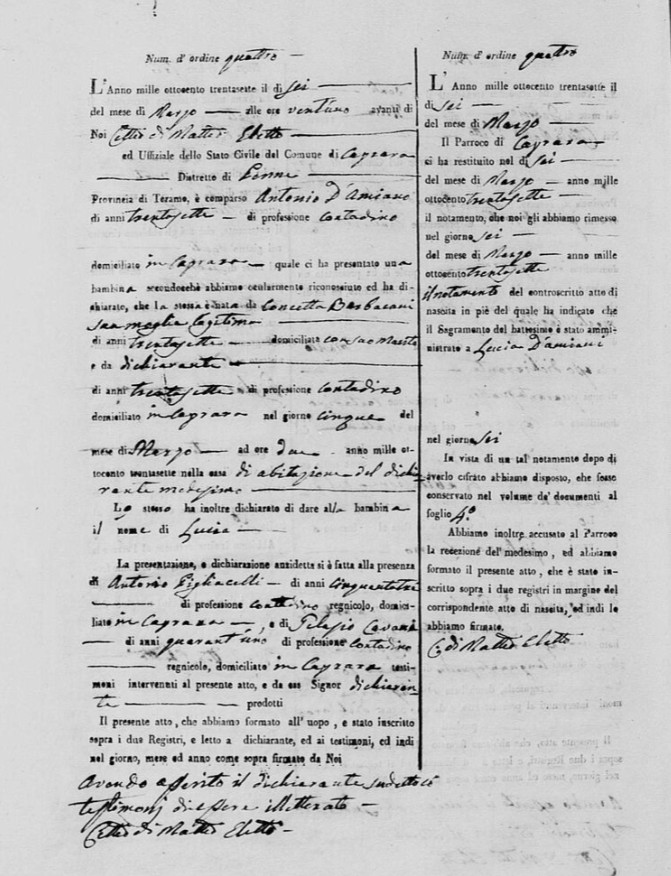 Num. d' ordine quattro
L'Anno mille ottocento trentasette il di sei
del mese di Marzo alle ore ventuno avanti di
Noi di Matteo Eletto
ed Uffiziale dello Stato Civile del Comune di Caprara
Distretto di Penne
Provincia di Teramo, è comparso Antonio D'Amiano
di anni trentasette di professione contadino
domiciliato in Caprara quale ci ha presentato una
bambina secondochè abbiamo ocularmente riconosciuto ed ha di-
chiarato, che la stessa è nata da Concetta
sua moglie legitima
di anni trentasette domiciliata con suo Marito
e da dichiarante
di anni trentasette di professione contadino
domiciliato in Caprara nel giorno cinque del
mese di Marzo ad ore due anno mille ot-
tocento trentasette nella casa di abitazione del dichia-
rante medesimo
Lo stesso ha inoltre dichiarato di dare alla bambina
il nome di Lucia
La presentazione, e dichiarazione anzidetta si è fatta alla presenza
di Antonio di anni cinquantatre
di professione contadino regnicolo, domici-
liato in Caprara, e di
di anni quarant'uno di professione contadino
regnicolo, domiciliato in Caprara testi-
moni intervenuti al presente atto, e da esso Signor dichiaran-
te prodotti
Il presente atto, che abbiamo formato all' uopo, è stato inscritto
sopra i due Registri, e letto a dichiarante, ed ai testimoni, ed indi
nel giorno, mese ed anno come sopra firmato da Noi
avendo asserito il dichiarante sudetto
testimonj di essere illetterato
di Matteo Eletto
Num. d' ordine quattro
L' Anno mille ottocento trentasette il
di sei
del mese di Marzo
Il Parroco di Caprara
ci ha restituito nel di sei
del mese di Marzo anno mille
ottocento trentasette
il notamento, che noi gli abbiamo rimesso
nel giorno sei
del mese di Marzo anno mille
ottocento trentasette
il notamento del controscritto atto di
nascita in piè del quale ha indicato che
il Sagramento del battesimo è stato ammi-
nistrato a Lucia D'Amiani
nel giorno sei
In vista di un tal notamento dopo di
averlo cifrato abbiamo disposto, che fosse
conservato nel volume de' documenti al
foglio 4.º
Abbiamo inoltre accusato al Parroco
la recezione del medesimo, ed abbiamo
formato il presente atto, che è stato in-
scritto sopra i due registri in margine del
corrispondente atto di nascita, ed indi lo
abbiamo firmato.
C. di Matteo Eletto